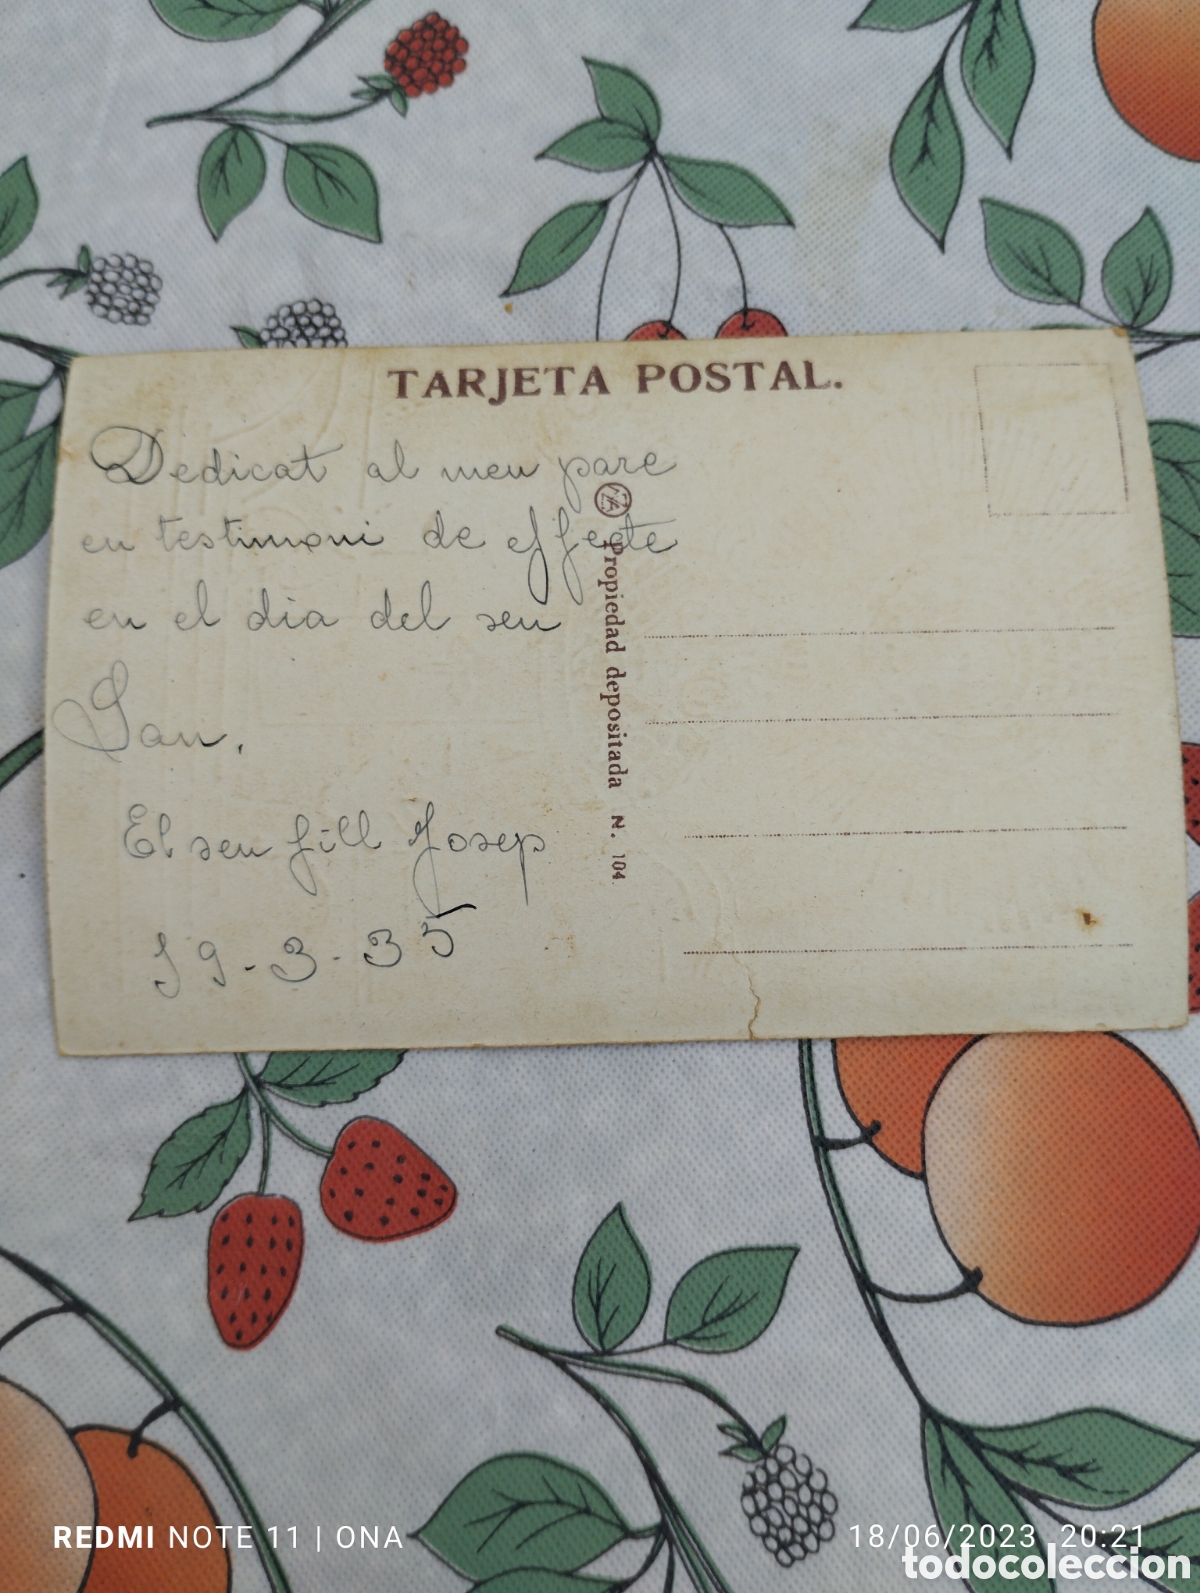 TARJETA POSTAL.
Dedicat al meu pare
en testimoni de effecte
en el dia del seu
San.
El seu fill Josep
19-3-35
Propiedad depositada N. 104
REDMI NOTE 11 | ONA
18/06/2023 20:21
todocoleccion